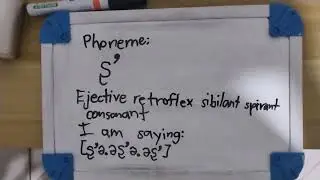 Phoneme:
ʂʼ
Ejective retroflex sibilant spirant
consonant
I am saying:
[ʂʼə.əʂʼə.əʂʼ]